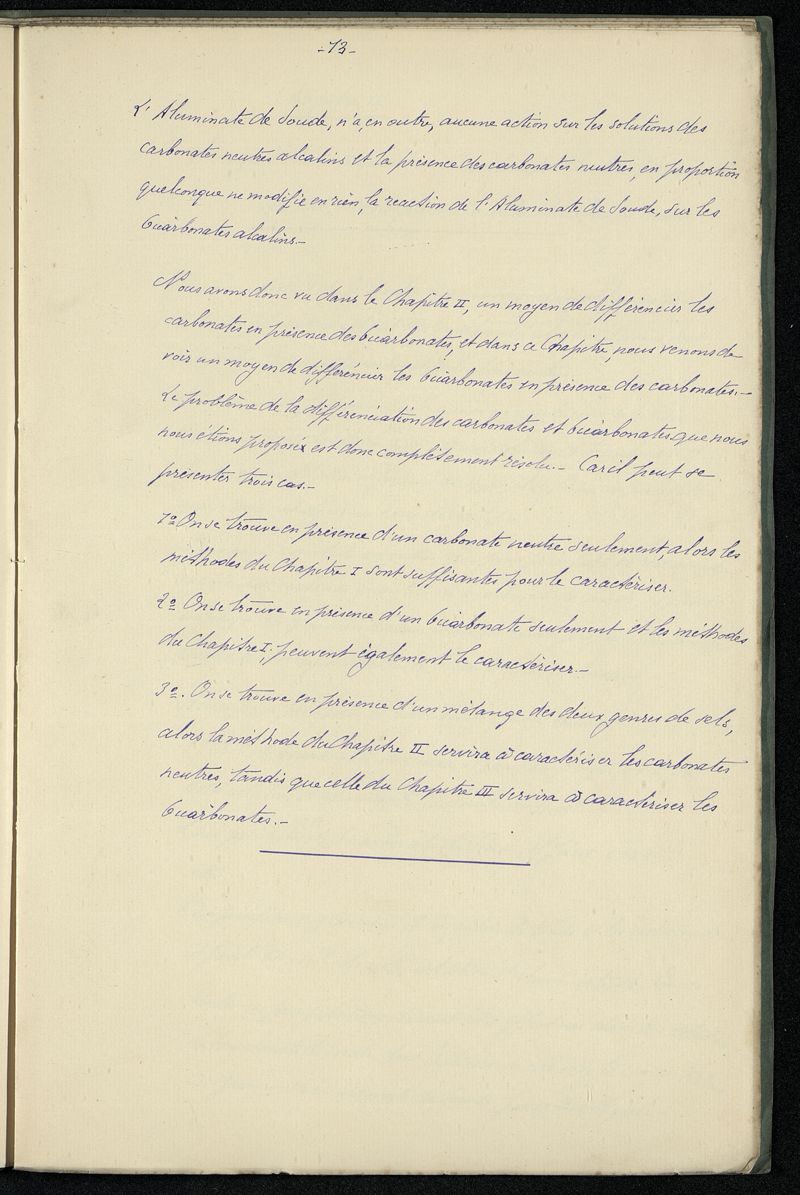 -13-
L'Aluminate de Soude, n'a, en outre, aucune action sur les solutions des
carbonates neutres alcalins et la présence des carbonates neutres, en proportion
quelconque ne modifie en rien, la reaction de l'Aluminate de Soude, sur les
bicarbonates alcalins.-
Nous avons donc vu dans le Chapitre II, un moyen de différencier les
carbonates en présence des bicarbonates, et dans ce Chapitre, nous venons de
voir un moyen de différencier les bicarbonates en présence des carbonates.-
Le problème de la différenciation des carbonates et bicarbonates que nous
nous étions proposés est donc complètement résolu.- Car il peut se
présenter trois cas.-
1º On se trouve en présence d'un carbonate neutre seulement, alors les
méthodes du Chapitre I sont suffisantes pour le caractériser.
2º On se trouve en présence d'un bicarbonate seulement et les méthodes
du Chapitre I, peuvent également le caractériser.-
3º. On se trouve en présence d'un mélange des deux genres de sels,
alors la méthode du Chapitre II servira à caractériser les carbonates
neutres, tandis que celle du Chapitre III servira à caractériser les
bicarbonates.-